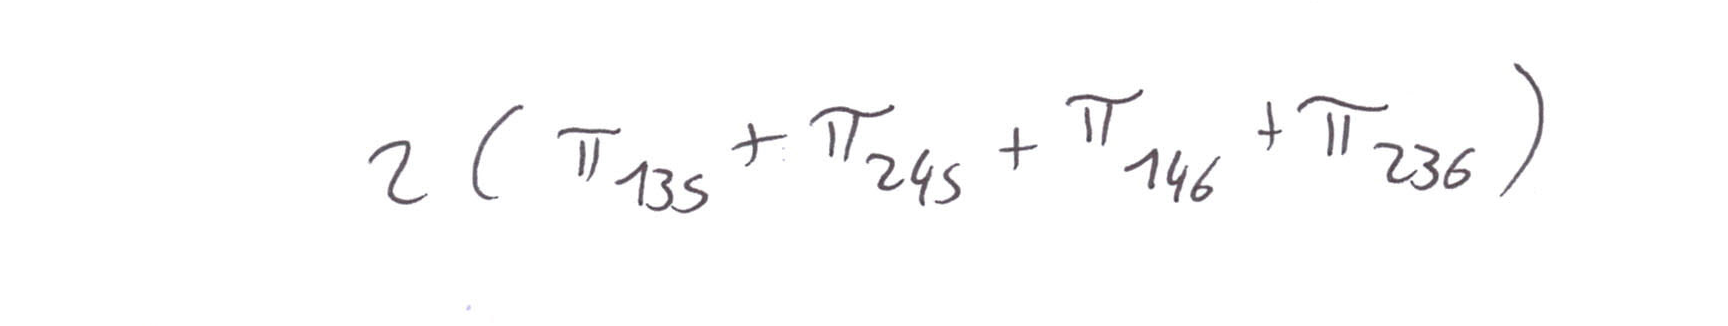 2 ( π₁₃₅ + π₂₄₅ + π₁₄₆ + π₂₃₆ )